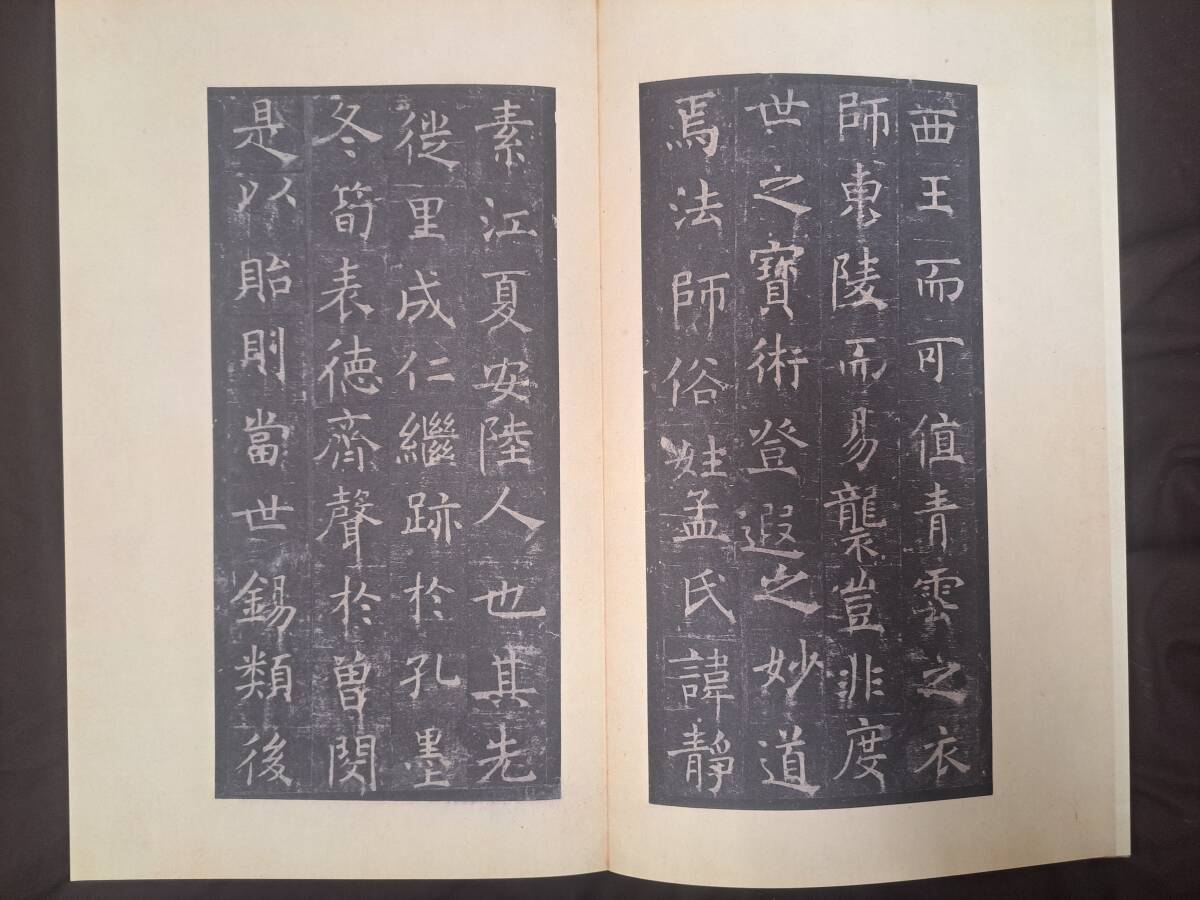 西王而可值青雲之衣
師東陵而易襲豈非度
世之寶術登遐之妙道
焉法師俗姓孟氏諱靜
素江夏安陸人也其先
徙里成仁繼跡於孔墨
冬筍表德齊聲於曾閔
是以貽則當世錫類後